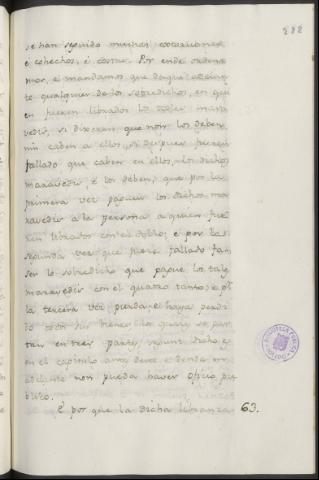 se han seguido muchas
é cohechos, é costas. Por ende ordena
mos, é mandamos que daqui adelan
te qualquier de los sobredichos, en qui
en fueren librados los tales mara
vedis, si dixeren que non los deben,
nin caben a ellos, si despues fueren
fallado que caben en ellos los dichos
maravedis, é los deben, que por la
primera vez paguen los dichos ma
ravedis a la persona a quien fue
ren librados con el doblo, é por la
segunda vez que fuere fallado fa
ser lo sobredicho que pague los tales
maravedis con el quatro tanto, é por
la tercera vez pierda, é haya perdi
do todos sus bienes, los quales se par
tan en tres partes, segunt dicho es
en el capitulo ante deste, é dende en
adelante non pueda haver oficio pu
blico.
É por que la dicha libranza 63.